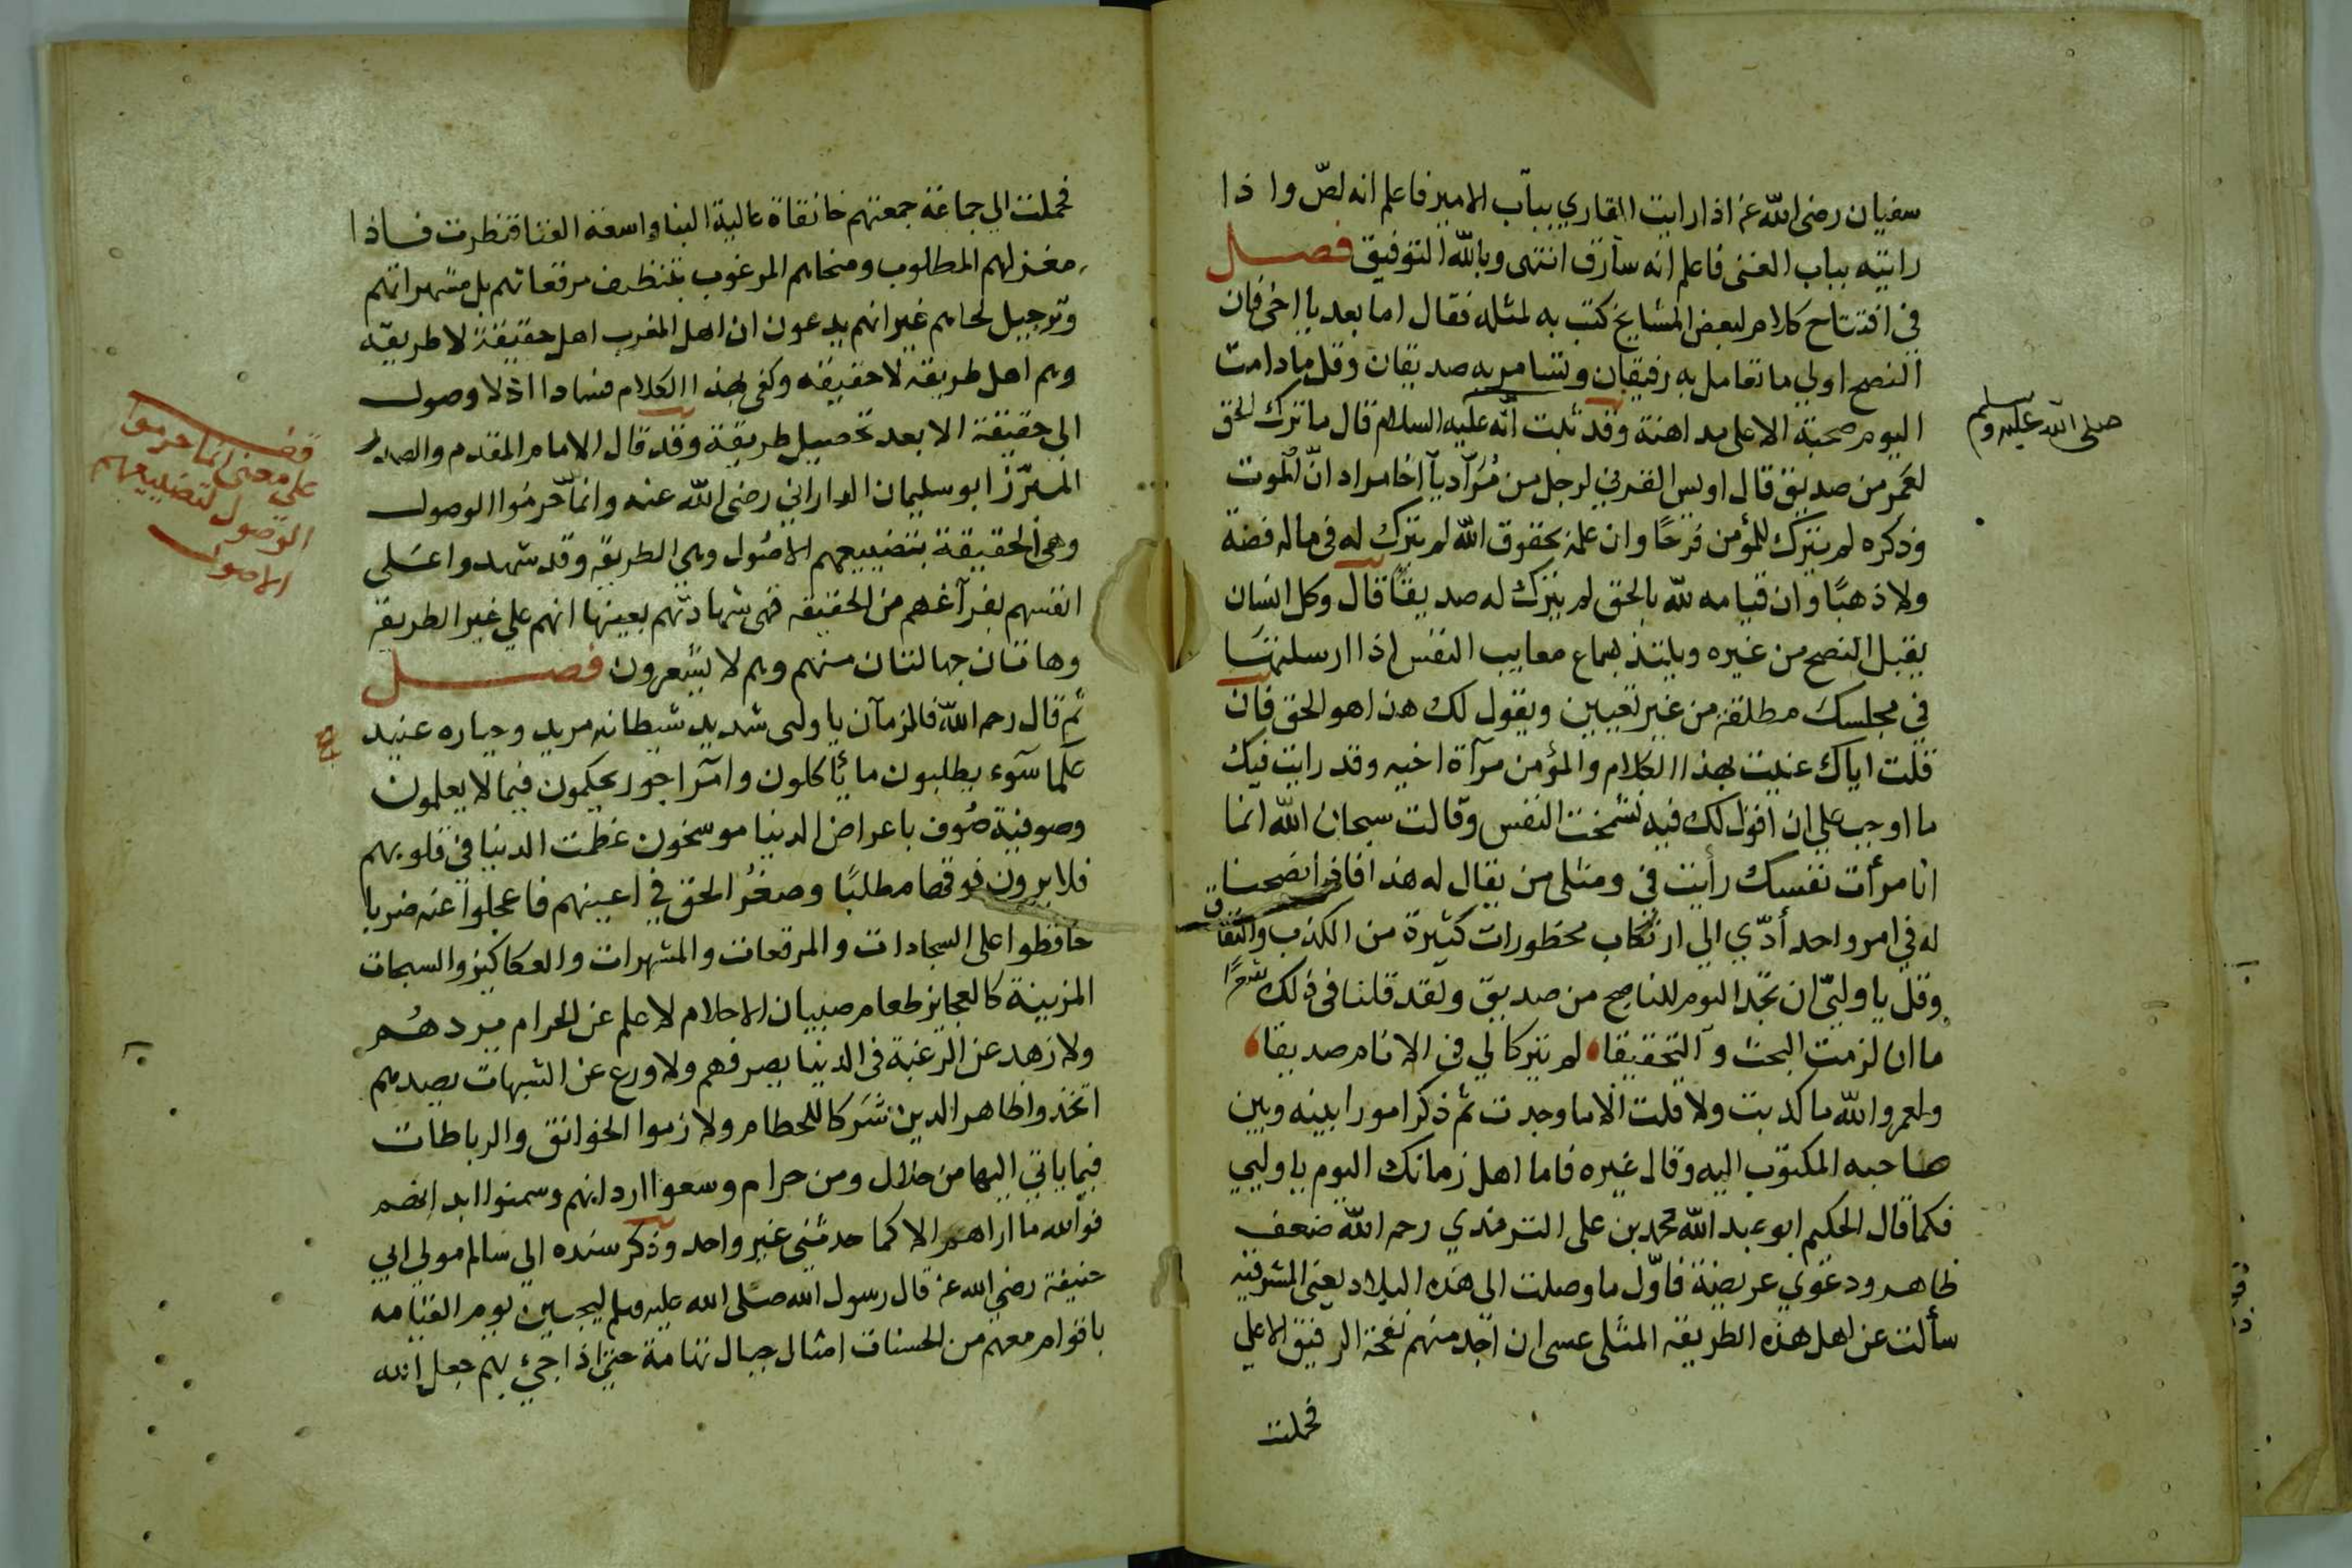 سفيان رضى الله عنه اذا رايت القاري بباب الامير فاعلم انه لصّ واذا
رايته بباب الغنى فاعلم انه سارق انتهى وبالله التوفيق فصل
فى افتتاح كلام لبعض المشايخ كتب به لمثله فقال اما بعد يا اخى فان
النصح اولى ما تعامل به رفيقان وتسامر به صديقان وقل ما دامت
اليوم صحبة الا على مداهنة وقد ثبت انه عليه السلام قال ما ترك الحق
صلى الله عليه وسلم
لعمر من صديق قال اويس القرني لرجل من مراد يا اخا مراد انّ الموت
وذكره لم يترك للمؤمن فرحًا وان علمه بحقوق الله لم يترك له فى ماله فضة
ولا ذهبًا وان قيامه لله بالحق لم يترك له صديقًا قال وكل انسان
يقبل النصح من غيره ويلتذ بسماع معايب النفس اذا ارسلتها
في مجلسك مطلقة من غير تعيين ويقول لك هذا هو الحق فان
قلت اياك عنيت بهذا الكلام والمؤمن مرآة اخيه وقد رايت فيك
ما اوجب على ان اقول لك فيه تشمخت النفس وقالت سبحان الله انما
انا مرأت نفسك رأيت في ومثلى من يقال له هذا فاذا نصحنا
له في امر واحد أدّي الي ارتكاب محظورات كثيرة من الكذب والنفاق
وقل يا وليّ ان تجد اليوم للناصح من صديق ولقد قلنا فى ذلك
ما ان لزمت البحث والتحقيقا لم يتركا لي في الانام صديقا
ولعمر والله ما كذبت ولا قلت الا ما وجدت ثم ذكر امورا بينه وبين
صاحبه المكتوب اليه وقال غيره فاما اهل زمانك اليوم يا وليي
فكما قال الحكيم ابو عبد الله محمد بن على الترمذي رحمه الله ضعف
ظاهر ودعوي عريضة فاوّل ما وصلت الى هذه البلاد يعنى المشرقية
سألت عن اهل هذه الطريقة المثلى عسى ان اجد منهم نفحة الرفيق الاعلى
فحملت
فحملت الي جماعة جمعتهم خانقاة عالية البنا واسعة الفنا فنظرت فاذا
مغزاهم المطلوب ومنحاهم المرغوب بتنظيف مرقعاتهم بل مشهراتهم
وترجيل لحاهم غير انهم يدعون ان اهل المغرب اهل حقيقة لا طريقة
وهم اهل طريقة لا حقيقة وكفى بهذا الكلام فسادا اذ لا وصول
الى حقيقة الا بعد تحصيل طريقة وقد قال الامام المقدم والصدر
المبرّز ابو سليمان الداراني رضى الله عنه وانما حرموا الوصول
وهى الحقيقة بتضييعهم الاصول وهي الطريقة وقد شهدوا على
انفسهم بفراغهم من الحقيقة فهى شهادتهم بعينها انهم على غير الطريقة
وهاتان جهالتان منهم وهم لا يشعرون فصل
ثم قال رحمه الله فالزمان يا ولى شديد شيطانه مريد وجباره عنيد
علما سوء يطلبون ما يأكلون وامرا جور يحكمون فيما لا يعلمون
وصوفية صوف باعراض الدنيا موسخون عظمت الدنيا فى قلوبهم
فلا يرون فوقها مطلبًا وصغر الحق في اعينهم فاعجلوا عنه ضربا
حافظوا على السجادات والمرقعات والمشهرات والعكاكيز والسبحات
المزينة كالعجايز طعام صبيان الاحلام لا علم عن الحرام يردهم
ولا زهد عن الرغبة فى الدنيا يصرفهم ولا ورع عن الشبهات يصدهم
اتخذوا ظاهر الدين شركا للحطام ولازموا الخوانق والرباطات
فيما ياتي اليها من حلال ومن حرام وسعوا اردانهم وسمنوا ابدانهم
فوالله ما اراهم الا كما حدثني غير واحد وذكر سنده الى سالم مولى ابي
حنيفة رضي الله عنه قال رسول الله صلى الله عليه وسلم ليجيئن يوم القيامه
باقوام معهم من الحسنات امثال جبال تهامة حتى اذا جئ بهم جعل الله
قف
على معنى انما حرموا
الوصول لتضييعهم
الاصول